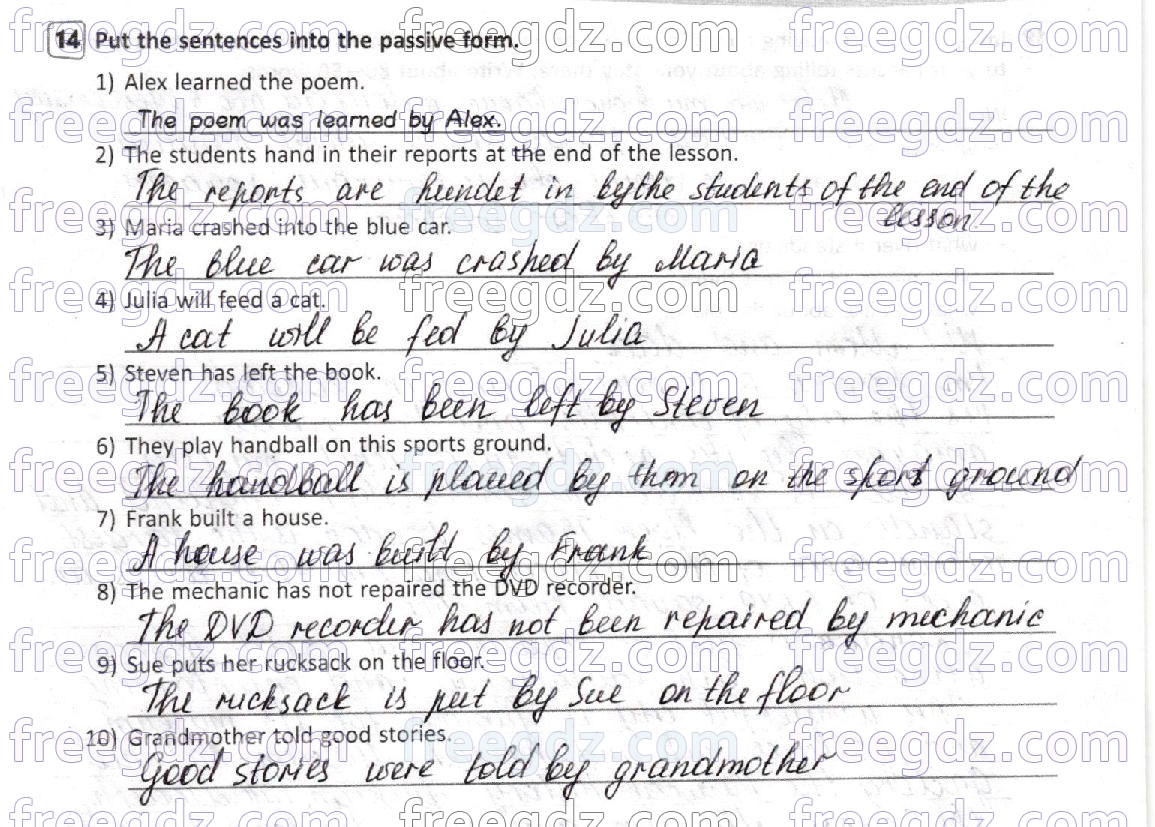 14 Put the sentences into the passive form.
1) Alex learned the poem.
The poem was learned by Alex.
2) The students hand in their reports at the end of the lesson.
The reports are hundet in by the students of the end of the
lesson.
3) Maria crashed into the blue car.
The blue car was crashed by Maria
4) Julia will feed a cat.
A cat will be fed by Julia
5) Steven has left the book.
The book has been left by Steven
6) They play handball on this sports ground.
The handball is plaued by them on the sport ground
7) Frank built a house.
A house was built by Frank
8) The mechanic has not repaired the DVD recorder.
The DVD recorder has not been repaired by mechanic
9) Sue puts her rucksack on the floor.
The rucksack is put by Sue on the floor
10) Grandmother told good stories.
Good stories were told by grandmother
freegdz.com freegdz.com freegdz.com